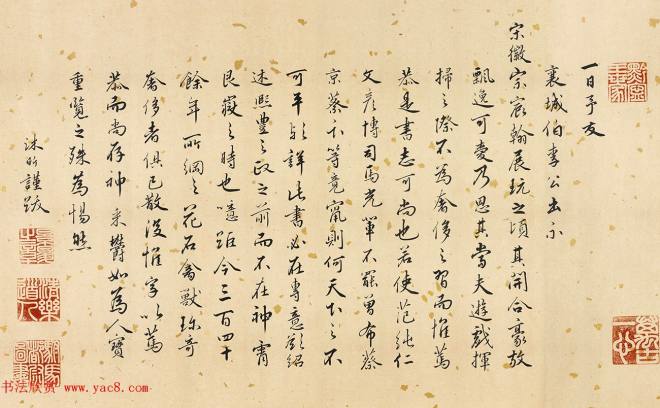 一日予友
襄城伯李公出示
宋徽宗宸翰展玩之頃其開合豪放
飄逸可愛乃思其當夫遊戲揮
掃之際不為奢侈之習而惟篤
恭是書志可尚也若使范純仁
文彥博司馬光輩不罷曽布蔡
京蔡卞等竟竄則何天下之不
可平歟詳此書必在專意欲紹
述熙豐之政之前而不在神霄
艮嶽之時也噫距今三百四十
餘年所綱之花石禽獸珎奇
奢侈者俱已散沒惟字以篤
恭而尚存神采欝如為人寶
重覧之殊為惕然
沐昕謹跋
书法欣赏 www.yac8.com